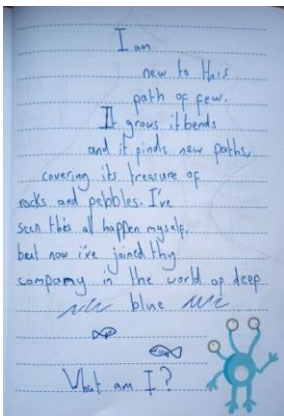 I am
new to this
path of few.
It grows it bends
and it finds new paths,
covering its treasure of
rocks and pebbles. I've
seen this all happen myself,
but now i've joined thy
company in the world of deep
blue
What am I?